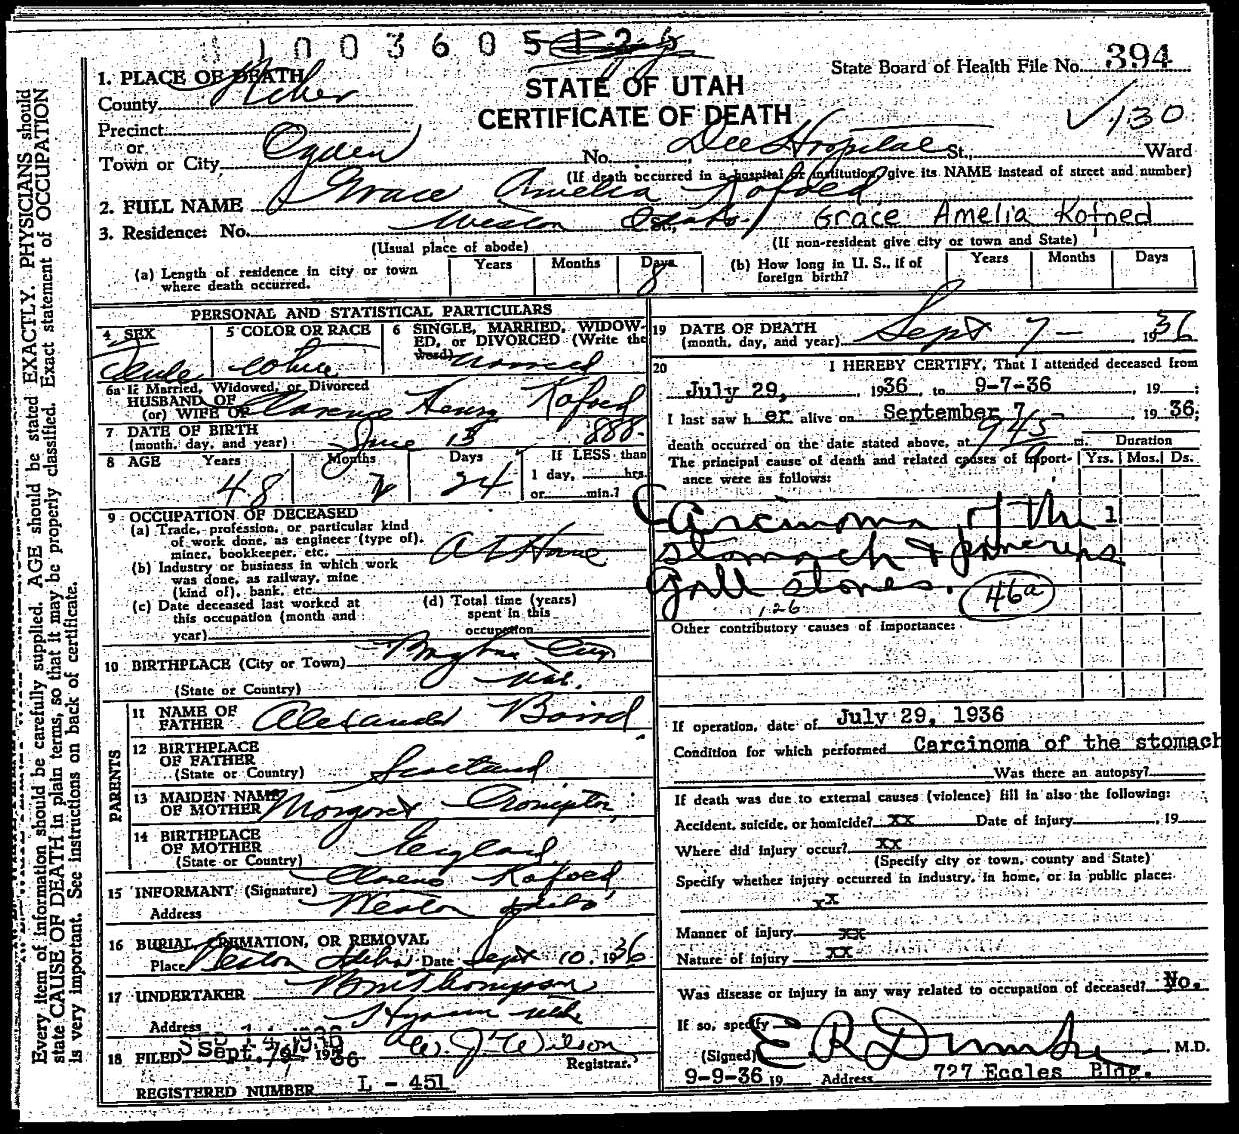 1003605
State Board of Health File No. 394
1. PLACE OF DEATH
STATE OF UTAH
CERTIFICATE OF DEATH
County Weber
√130
Precinct
or
Town or City Ogden No. Dee Hospital St., Ward
(If death occurred in a hospital or institution, give its NAME instead of street and number)
2. FULL NAME Grace Amelia Kofoed
Grace Amelia Kofoed
3. Residence: No. Weston Idaho
(Usual place of abode)
(If non-resident give city or town and State)
(a) Length of residence in city or town where death occurred. Years Months Days 8
(b) How long in U. S., if of foreign birth? Years Months Days
PERSONAL AND STATISTICAL PARTICULARS
4 SEX
5 COLOR OR RACE
6 SINGLE, MARRIED, WIDOWED, or DIVORCED (Write the word)
Female White Married
6a If Married, Widowed, or Divorced
HUSBAND OF
(or) WIFE OF Clarence Henry Kofoed
7 DATE OF BIRTH
(month, day, and year) June 13 1888
8 AGE Years Months Days If LESS than
48 2 24
1 day, hrs.
or min.?
9 OCCUPATION OF DECEASED
(a) Trade, profession, or particular kind
of work done, as engineer (type of),
miner, bookkeeper, etc. At Home
(b) Industry or business in which work
was done, as railway, mine
(kind of), bank, etc.
(c) Date deceased last worked at
this occupation (month and
year)
(d) Total time (years)
spent in this
occupation
10 BIRTHPLACE (City or Town) Brigham City
(State or Country) Utah.
PARENTS
11 NAME OF
FATHER Alexander Baird
12 BIRTHPLACE
OF FATHER
(State or Country) Scotland
13 MAIDEN NAME
OF MOTHER Margaret Crompton
14 BIRTHPLACE
OF MOTHER
(State or Country) England
15 INFORMANT (Signature) Kofoed
Address Weston Idaho
16 BURIAL, CREMATION, OR REMOVAL
Place Weston Idaho Date Sept 10, 1936
17 UNDERTAKER Thompson
Address Hyrum Utah
SEP 14 1936
18 FILED Sept. 19 36 W. J. Wilson
Registrar.
REGISTERED NUMBER L - 451
19 DATE OF DEATH
(month, day, and year) Sept 7 - 1936
20 I HEREBY CERTIFY, That I attended deceased from
July 29, 1936 to 9-7-36 , 19 ;
I last saw her alive on September 7 , 1936;
death occurred on the date stated above, at 945 a m.
Duration
Yrs. Mos. Ds.
The principal cause of death and related causes of importance were as follows:
Carcinoma of the 1
stomach & pancreas
Gall stones. 46a
126
Other contributory causes of importance:
If operation, date of July 29, 1936
Condition for which performed Carcinoma of the stomach
Was there an autopsy?
If death was due to external causes (violence) fill in also the following:
Accident, suicide, or homicide? xx Date of injury , 19
Where did injury occur? xx
(Specify city or town, county and State)
Specify whether injury occurred in industry, in home, or in public place:
xx
Manner of injury xx
Nature of injury xx
Was disease or injury in any way related to occupation of deceased? No.
If so, specify
(Signed) M.D.
9-9-36 19 Address 727 Eccles Bldg.
Every item of information should be carefully supplied. AGE should be stated EXACTLY. PHYSICIANS should
state CAUSE OF DEATH in plain terms, so that it may be properly classified. Exact statement of OCCUPATION
is very important. See instructions on back of certificate.